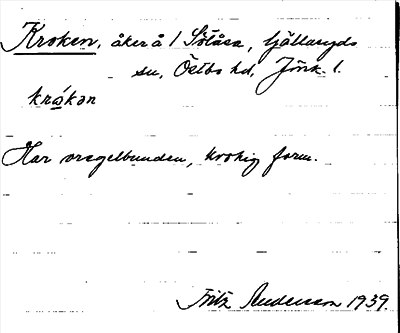 Kroken, åker å 1 Sölåsa, Gällaryds
sn, Östbo hd, Jönk. l.
krókən
Har oregelbunden, krokig form.
Fritz Andersson 1939.